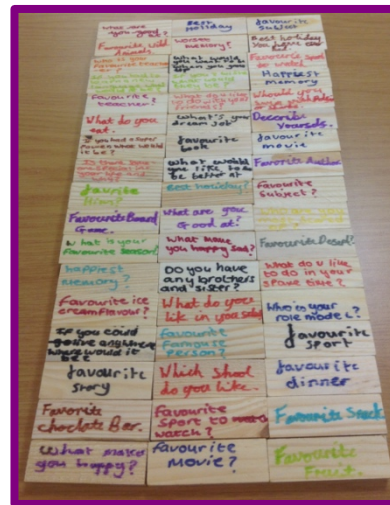 what are you good at?
Best holiday
favourite subject
Favourite wild animal.
worst memory?
Best holiday you have ever had.
what would you
Favourite sport
Happiest memory
favourite teacher?
what do u like to do with your friends?
Would you
What do you eat.
what's your dream job
Describe yourself.
if you had a super power what would it be?
favourite book
favourite movie
What would you like to be better at
Favourite Author
favourite
Best holiday?
Favourite Subject?
Favourite Board Game.
What are you Good at?
What is your Favourite Season?
What make you happy sad?
Favourite Desert?
happiest memory?
Do you have any brothers and sister?
What do u like to do in your spare time?
Favourite ice cream flavour?
What do you like in your
Who is your role model?
If you could go live anywhere where would it be
favourite famouse Person?
favourite sport
favourite story
Which shool do you like.
favourite dinner
Favorite choclate Bar.
Favourite Sport to watch?
Favourite Snack
What makes you happy?
favourite movie?
Favourite Fruit.